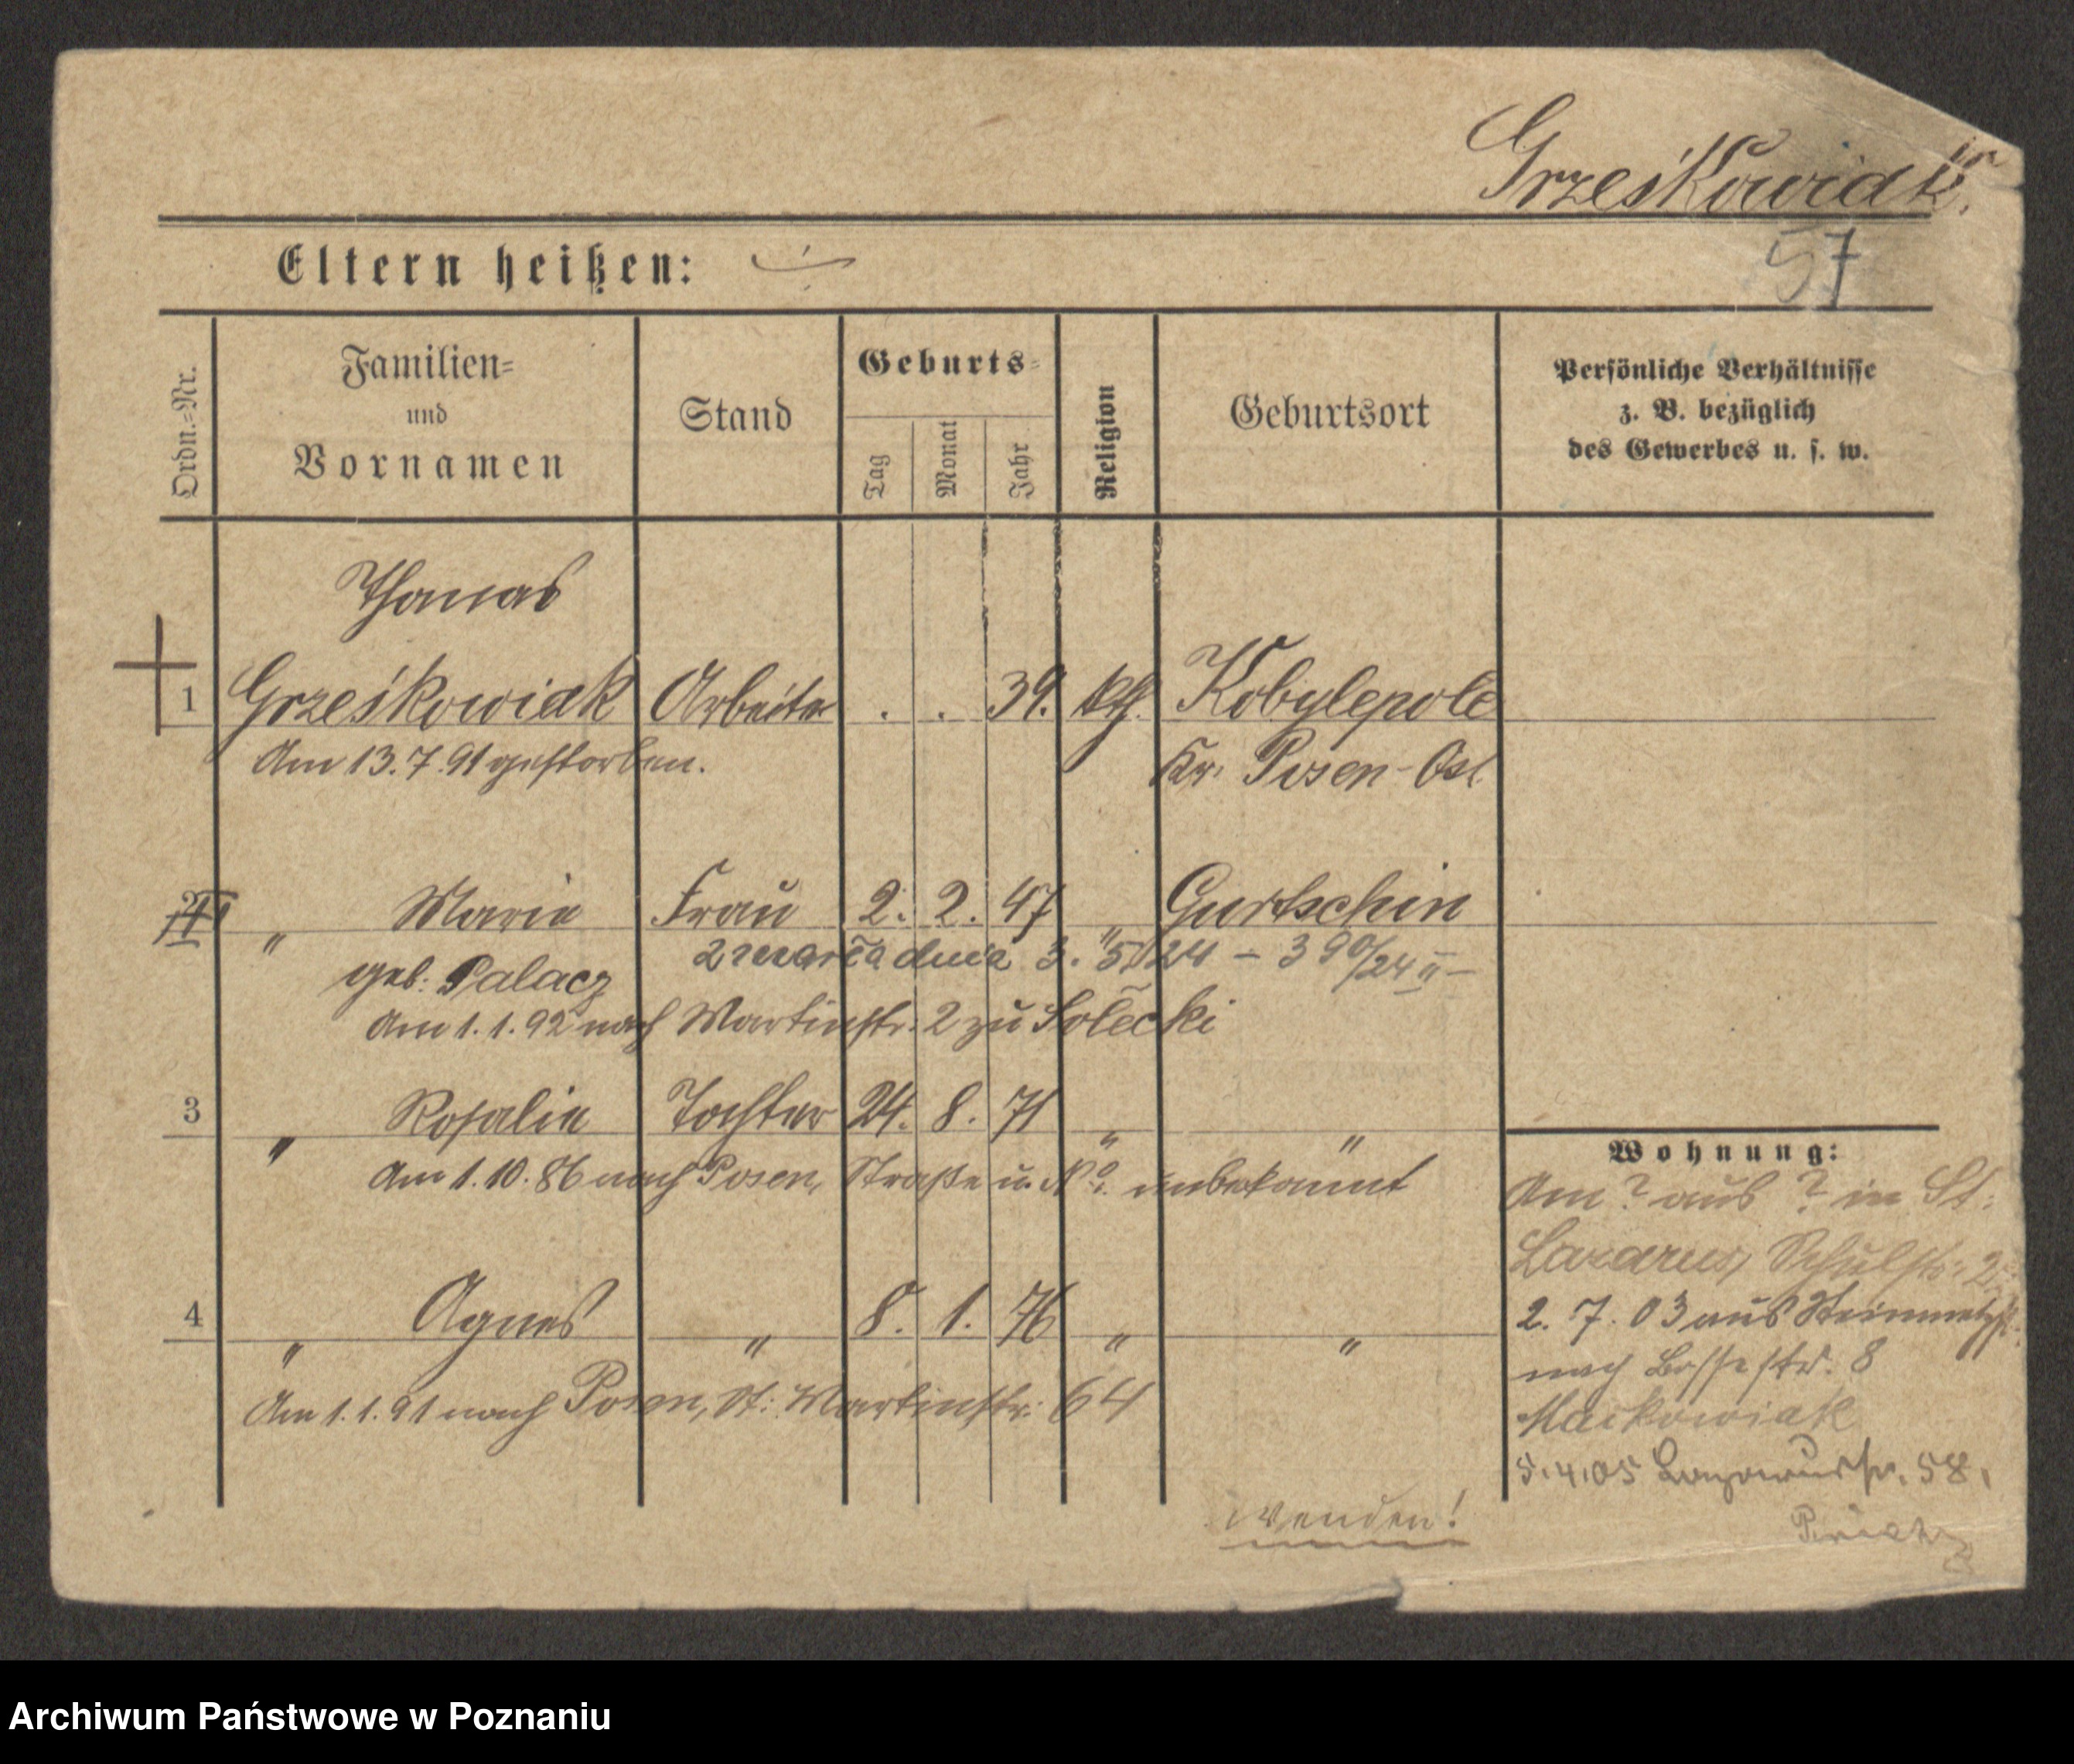 Grześkowiak.
57
Eltern heißen:
Ordn.-Nr.
Familien-
und
Vornamen
Stand
Geburts-
Tag
Monat
Jahr
Religion
Geburtsort
Persönliche Verhältnisse
z. B. bezüglich
des Gewerbes u. s. w.
Thomas
1 Grześkowiak Arbeiter . . 39. kth. Kobylepole
Am 13.7.91 gestorben. Kr. Posen-Ost
" Marie Frau 2. 2. 47 " Gurtschin
zmarła dnia 3. 5. 24 – 390/24 II –
geb. Palacz
Am 1.1.92 nach Martinstr. 2 zu Solecki
3 " Rosalie Tochter 24. 8. 71 " "
Am 1.10.86 nach Posen, Straße u. No. unbekannt
4 " Agnes " 8. 1. 76 " "
Am 1.1.91 nach Posen, St. Martinstr. 64
Wohnung:
Am ? aus ? in St.
Lazarus, Schulstr. 2
2. 7. 03 aus Steinmetzstr.
nach Bossestr. 8
Maćkowiak
5.4.05 Lazarusstr. 58.
wenden!
Archiwum Państwowe w Poznaniu